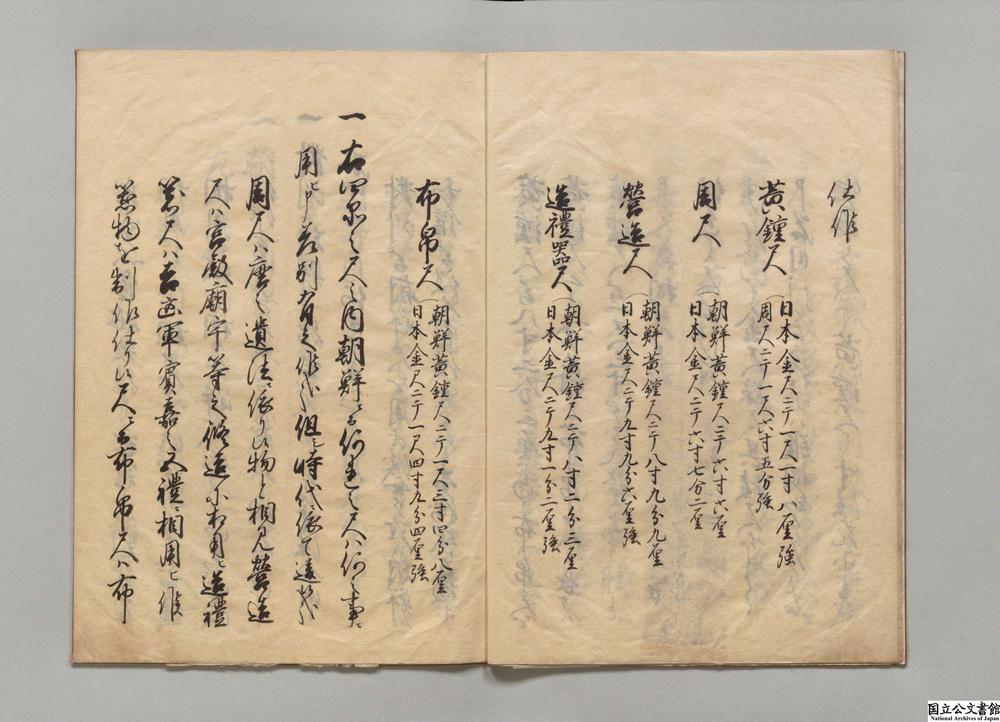 仕作
黃鐘尺
日本金尺ニテ一尺一寸八厘強
周尺ニテ一尺六寸五分強
周尺
朝鮮黃鐘尺ニテ六寸六厘
日本金尺ニテ六寸七分二厘
營造尺
朝鮮黃鐘尺ニテ八寸九分九厘
日本金尺ニテ九寸九分六厘強
造禮器尺
朝鮮黃鐘尺ニテ八寸二分三厘
日本金尺ニテ九寸一分二厘強
布帛尺
朝鮮黃鐘尺ニテ一尺三寸四分八厘
日本金尺ニテ一尺四寸九分四厘強
一 右之尺之内朝鮮ニ而何連之尺ハ何之事ニ
用ヒ候差別有之候哉但時代ニ依て違候哉
周尺ハ唐之遺法ニ依り候物と相見營造
尺ハ宮殿廟宇等之修造ニ相用ヒ造禮
器尺ハ吉凶軍賓嘉之五禮ニ相用ヒ候
器物を制作仕り候尺ニ而布帛尺ハ布
国立公文書館
National Archives of Japan